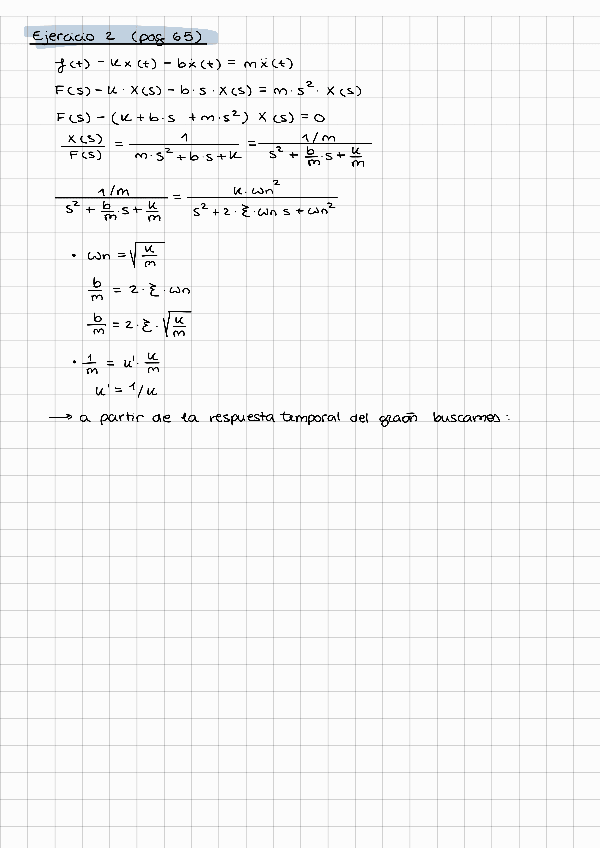 Ejercicio 2 (pag 65)
f(t) - kx(t) - bẋ(t) = mẍ(t)
F(s) - k · X(s) - b · s · X(s) = m · s² · X(s)
F(s) - (k + b · s + m · s²) X(s) = 0
X(s)/F(s) = 1/(m · s² + b s + k) = (1/m)/(s² + b/m · s + k/m)
(1/m)/(s² + b/m · s + k/m) = (k · ωn²)/(s² + 2 · ξ · ωn s + ωn²)
• ωn = √(k/m)
b/m = 2 · ξ · ωn
b/m = 2 · ξ · √(k/m)
• 1/m = k' · k/m
k' = 1/k
→ a partir de la respuesta temporal del buscamos: